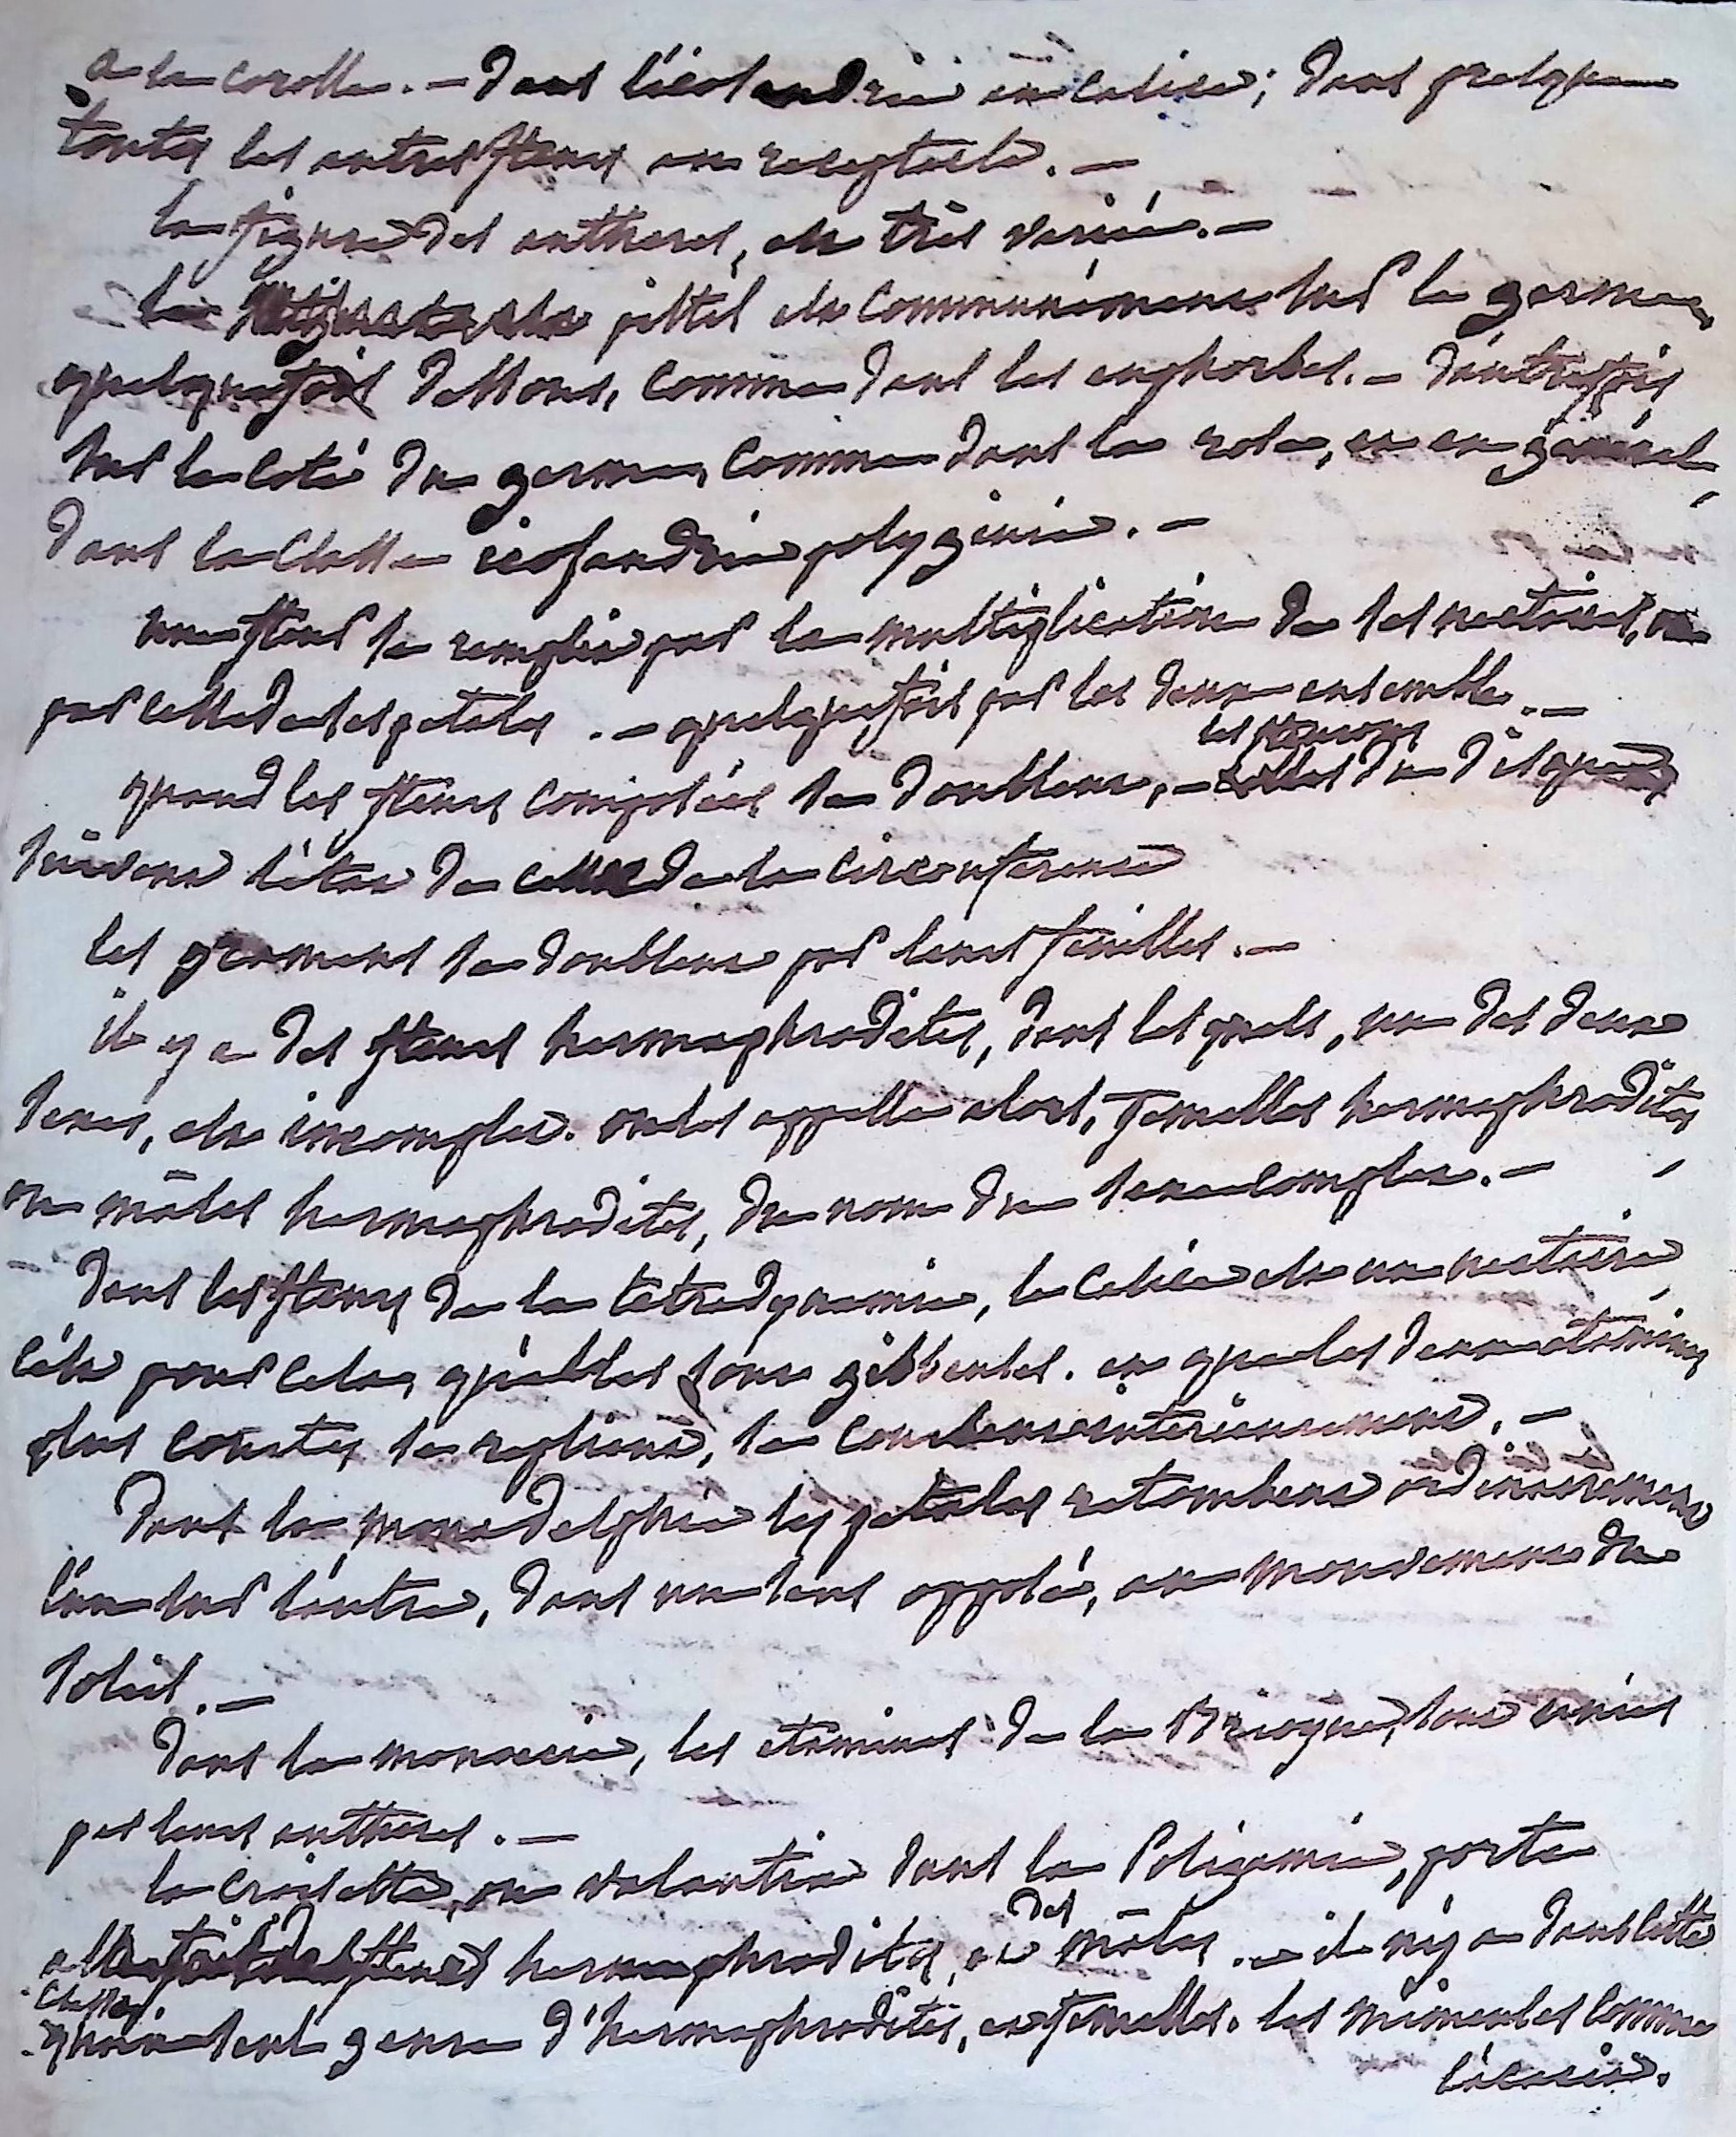 a la corolle. — dans l'icosandrie au calice; dans presque
toutes les autres fleurs au receptacle. —
la figure des antheres, est très variée. —
le pistil est communément sur le germe,
quelquefois dessous, comme dans les euphorbes. — d'autrefois
sur le coté du germe, comme dans la rose, et en général
dans la classe icosandrie polyginie. —
une fleur se remplit par la multiplication de ses nectaires, ou
par celle de ses petales. — quelquefois par les deux ensemble. —
les fleurons
quand les fleurs composées se doublent, — du disque
suivent l'état de celles de la circonference
les gramens se doublent par leurs feuilles. —
il y a des fleurs hermaphrodites, dans lesquels, un des deux
sexes, est incomplet. on les appelle alors, femelles hermaphrodites
ou mâles hermaphrodites, du nom du sexe complet. —
— dans les fleurs de la tetradynamie, le calice est un nectaire
c'est pour cela, qu'elles sont gibbeuses. et que les deux étamines
plus courtes se replient, se courbent intérieurement. —
dans la monadelphie les petales retombent ordinairement
l'un sur l'autre, dans un sens opposé, au mouvement du
soleil. —
dans la monoecie, les etamines de la Brioyne, sont unies
par leurs antheres. —
la croisette, ou valantia dans la Poligamie, porte
des
a la fois des fleurs hermaphrodites, et mâles. — il n'y a dans cette
classe,
qu'un seul genre d'hermaphrodites, et femelles. les mimeuses comme
l'acacia.